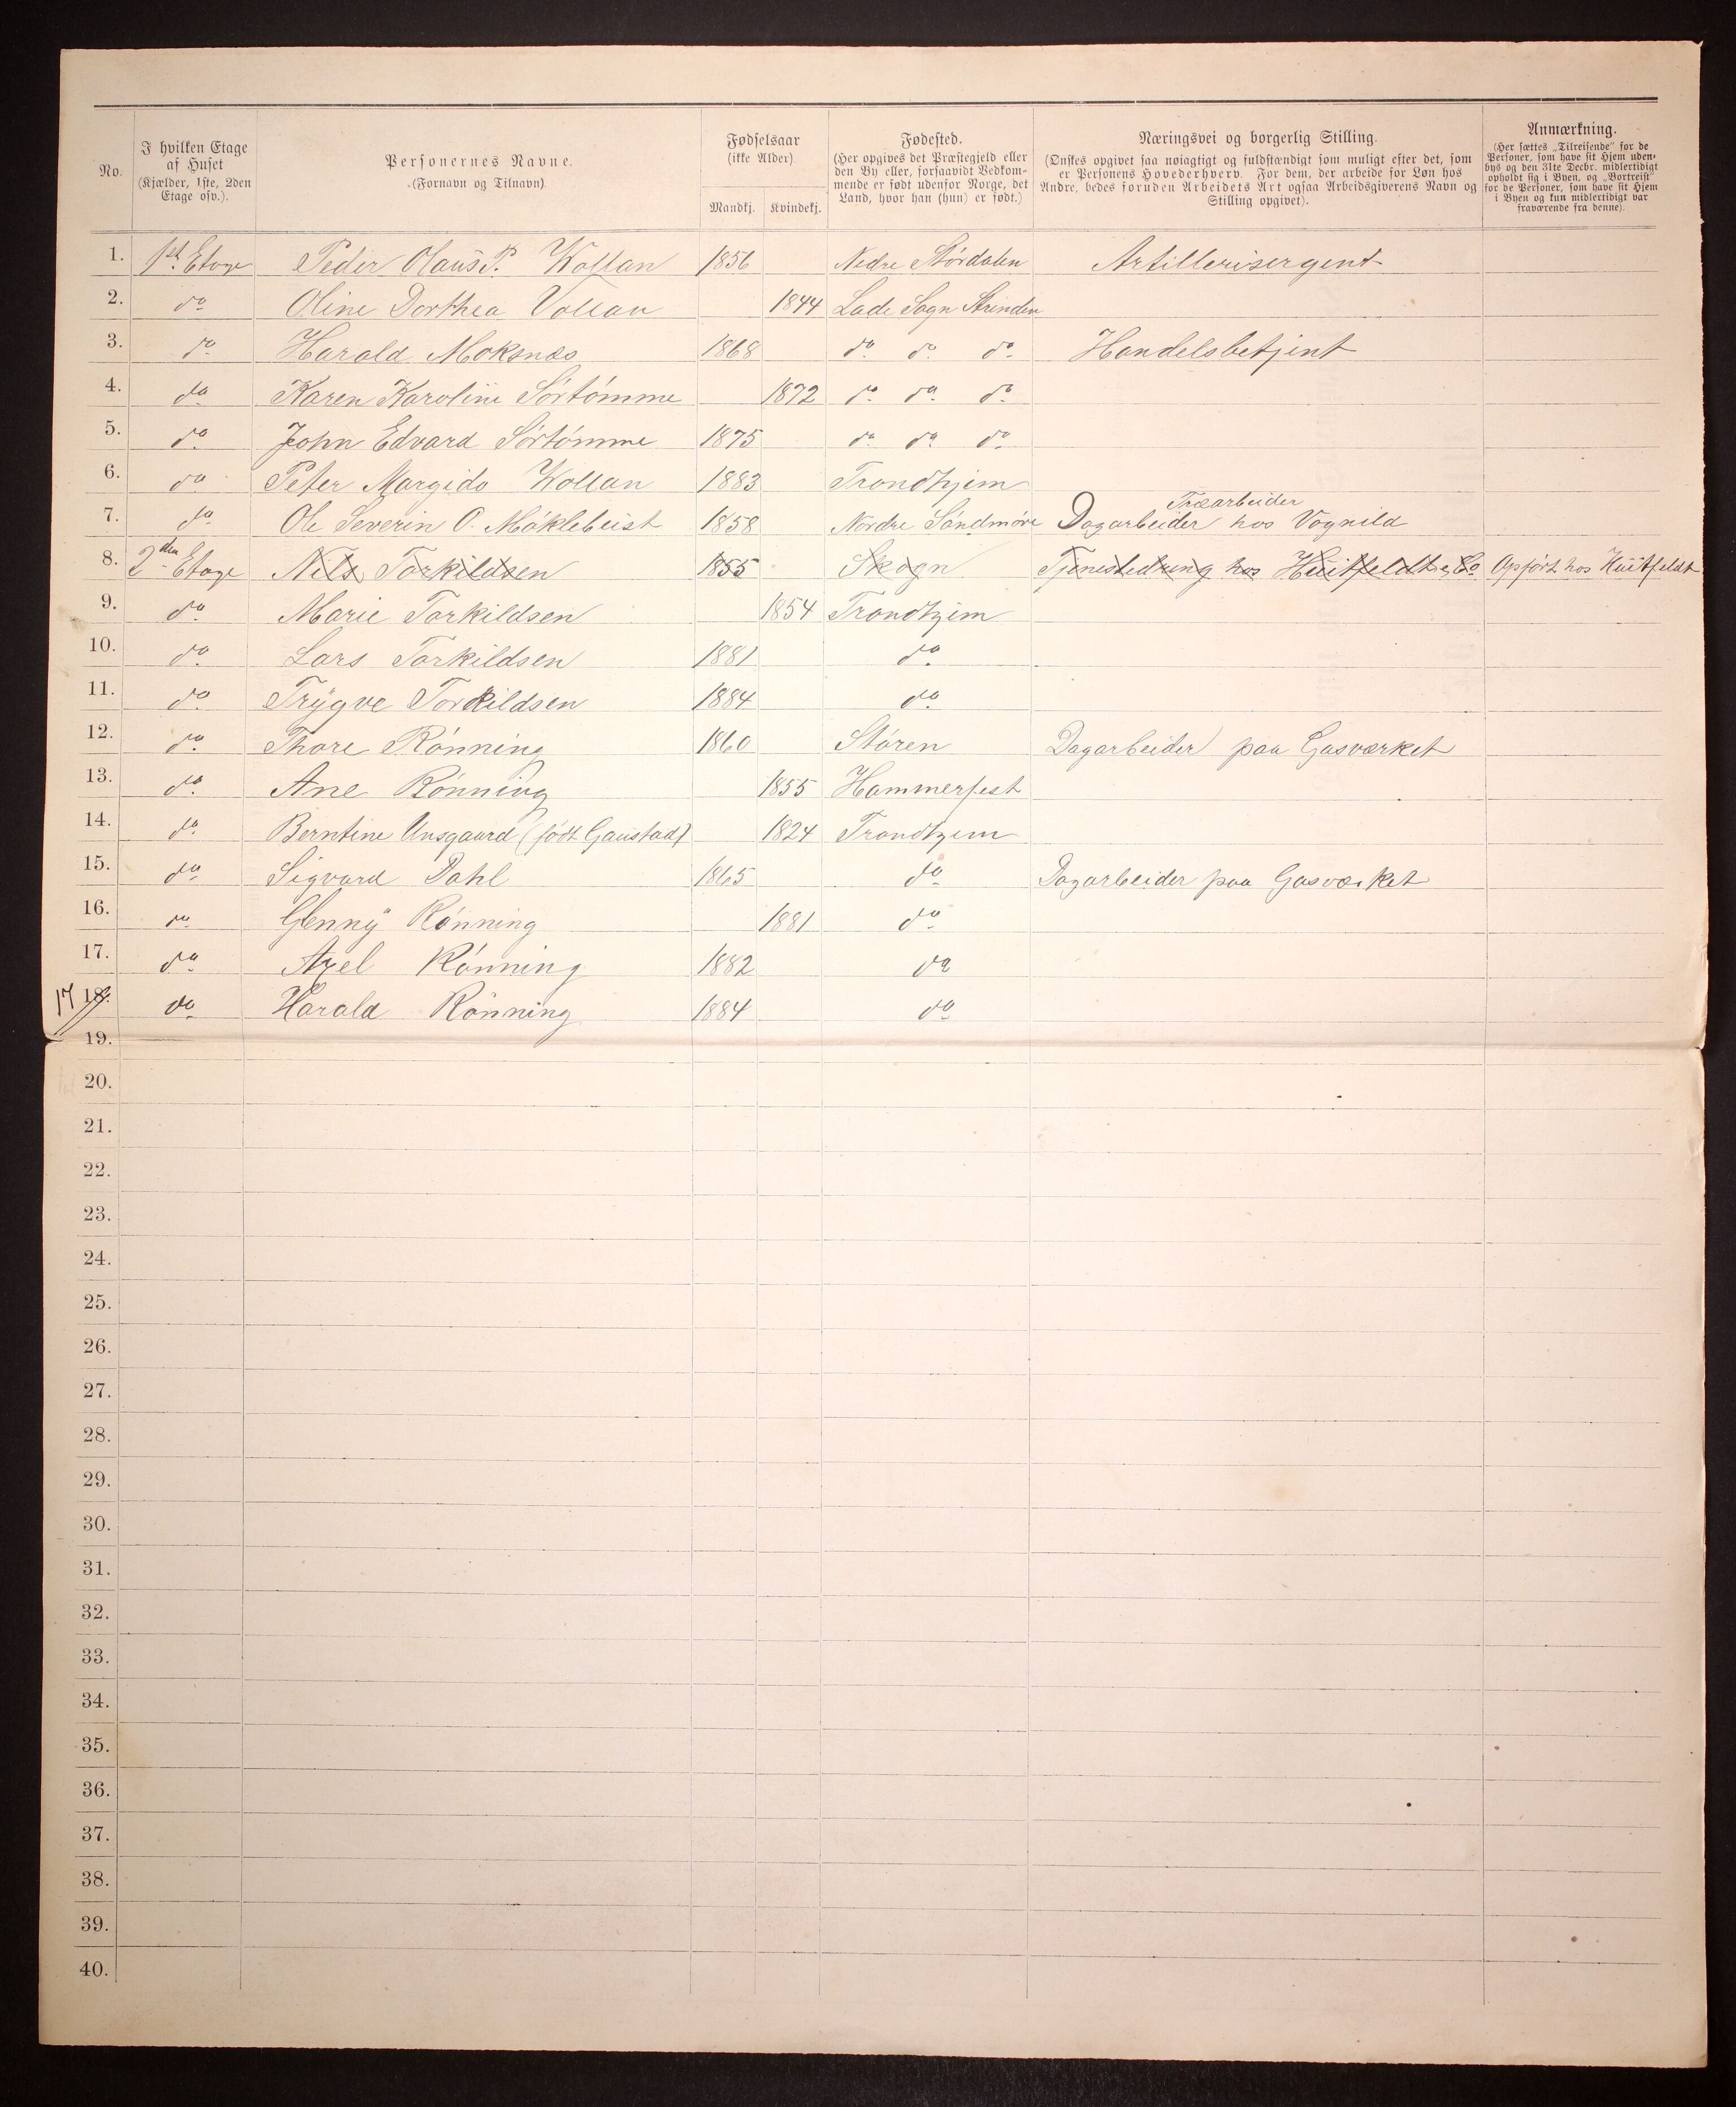 No.
I hvilken Etage
af Huset
(Kjælder, 1ste, 2den
Etage osv.).
Personernes Navne.
(Fornavn og Tilnavn)
Fødselsaar
(ikke Alder)
Mandkj. Kvindekj.
Fødested.
(Her opgives det Præstegjeld eller
den By eller, forsaavidt Vedkom-
mende er født udenfor Norge, det
Land, hvor han (hun) er født.)
Næringsvei og borgerlig Stilling.
(Ønskes opgivet saa nøiagtigt og fuldstændigt som muligt efter det, som
er Personens Hovederhverv. For dem, der arbeide for Løn hos
Andre, bedes foruden Arbeidets Art ogsaa Arbeidsgiverens Navn og
Stilling opgivet).
Anmærkning.
(Her sættes „Tilreisende" for de
Personer, som have sit Hjem uden-
bys og den 31te Decbr. midlertidigt
opholdt sig i Byen, og „Bortreist"
for de Personer, som have sit Hjem
i Byen og kun midlertidigt var
fraværende fra denne).
1. 1st. Etage Peder Olaus P. Wollan 1856 Nedre Størdalen Artillerisergent
2. do Oline Dorthea Vollan 1844 Lade Sogn Strinden
3. do Harald Moksnæs 1868 do do do Handelsbetjent
4. do Karen Karoline Sørtømme 1872 do do do
5. do John Edvard Sørtømme 1875 do do do
6. do Peter Margido Wollan 1883 Trondhjem
Træarbeider
7. do Ole Severin O. Möklebust 1858 Nordre Söndmöre Dagarbeider hos Vognild
8. 2den Etage Nils Torkildsen 1855 Skogn Tjenestedreng hos Huitfeldt & Co Opført hos Huitfeldt
9. do Marie Torkildsen 1854 Trondhjem
10. do Lars Torkildsen 1881 do
11. do Trygve Torkildsen 1884 do
12. do Thore Rønning 1860 Støren Dagarbeider paa Gasværket
13. do Ane Rønning 1855 Hammerfest
14. do Berntine Unsgaard (født Gaustad) 1824 Trondhjem
15. do Sigvard Dahl 1865 do Dagarbeider paa Gasværket
16. do Glenny Rønning 1881 do
17. do Axel Rønning 1882 do
17 18. do Harald Rønning 1884 do
19.
20.
21.
22.
23.
24.
25.
26.
27.
28.
29.
30.
31.
32.
33.
34.
35.
36.
37.
38.
39.
40.